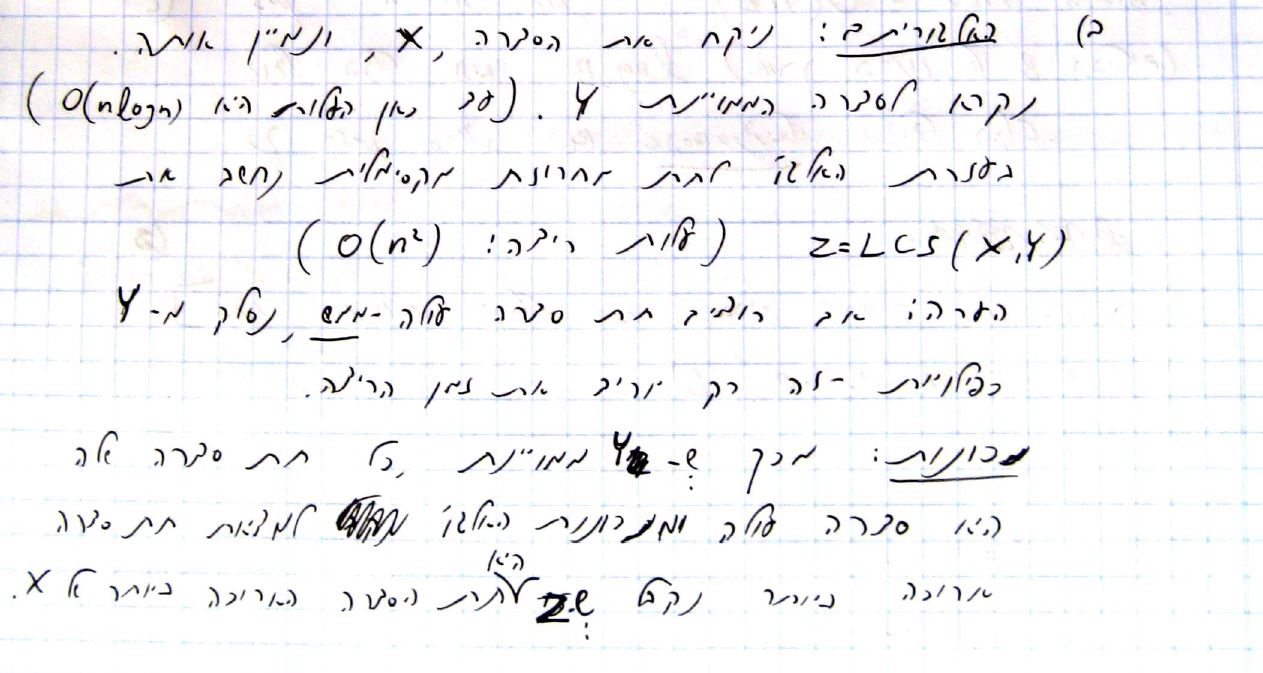 ב) האלגוריתם: ניקח את הסדרה X, ונמיין אותה.
נקרא לסדרה הממויינת Y. (עד כאן העלות היא O(nlogn))
בעזרת האלגו' לתת מחרוזת מקסימלית נחשב את
Z=LCS(X,Y) (עלות ריצה: O(n²))
הערה: אם רוצים תת סדרה עולה-ממש, נסלק מ-Y
כפילויות - זה רק יוריד את זמן הריצה.
נכונות: מכך ש-Y ממויינת, כל תת סדרה שלה
היא סדרה עולה ומנכונות האלגו' למציאת תת סדרה
ארוכה ביותר נקבל ש-Z היא תת הסדרה הארוכה ביותר של X.